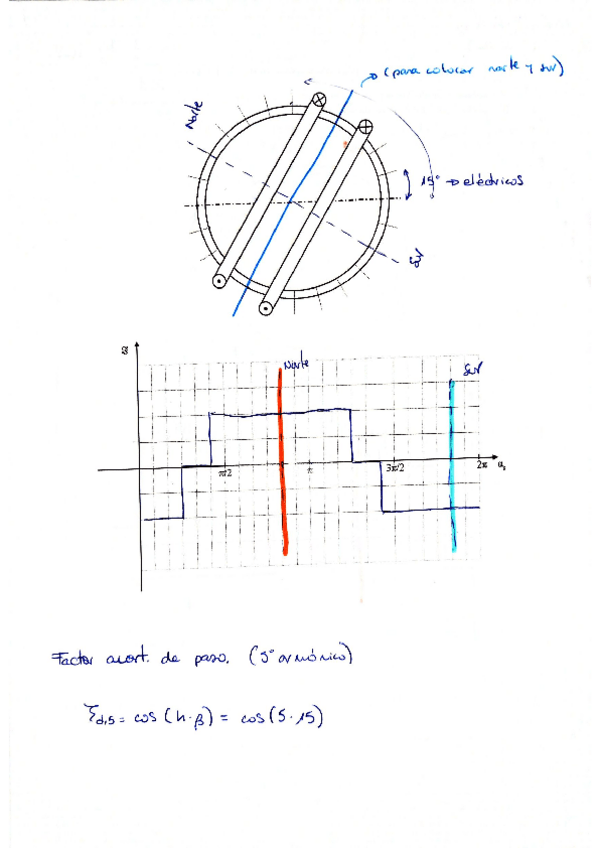 (para colocar norte y sur)
Norte
15° → eléctricos
Sur
B
Norte
Sur
π/2
π
3π/2
2π
Factor acort. de paso. (5° armónico)
ξd,5 = cos (h·β) = cos (5·15)